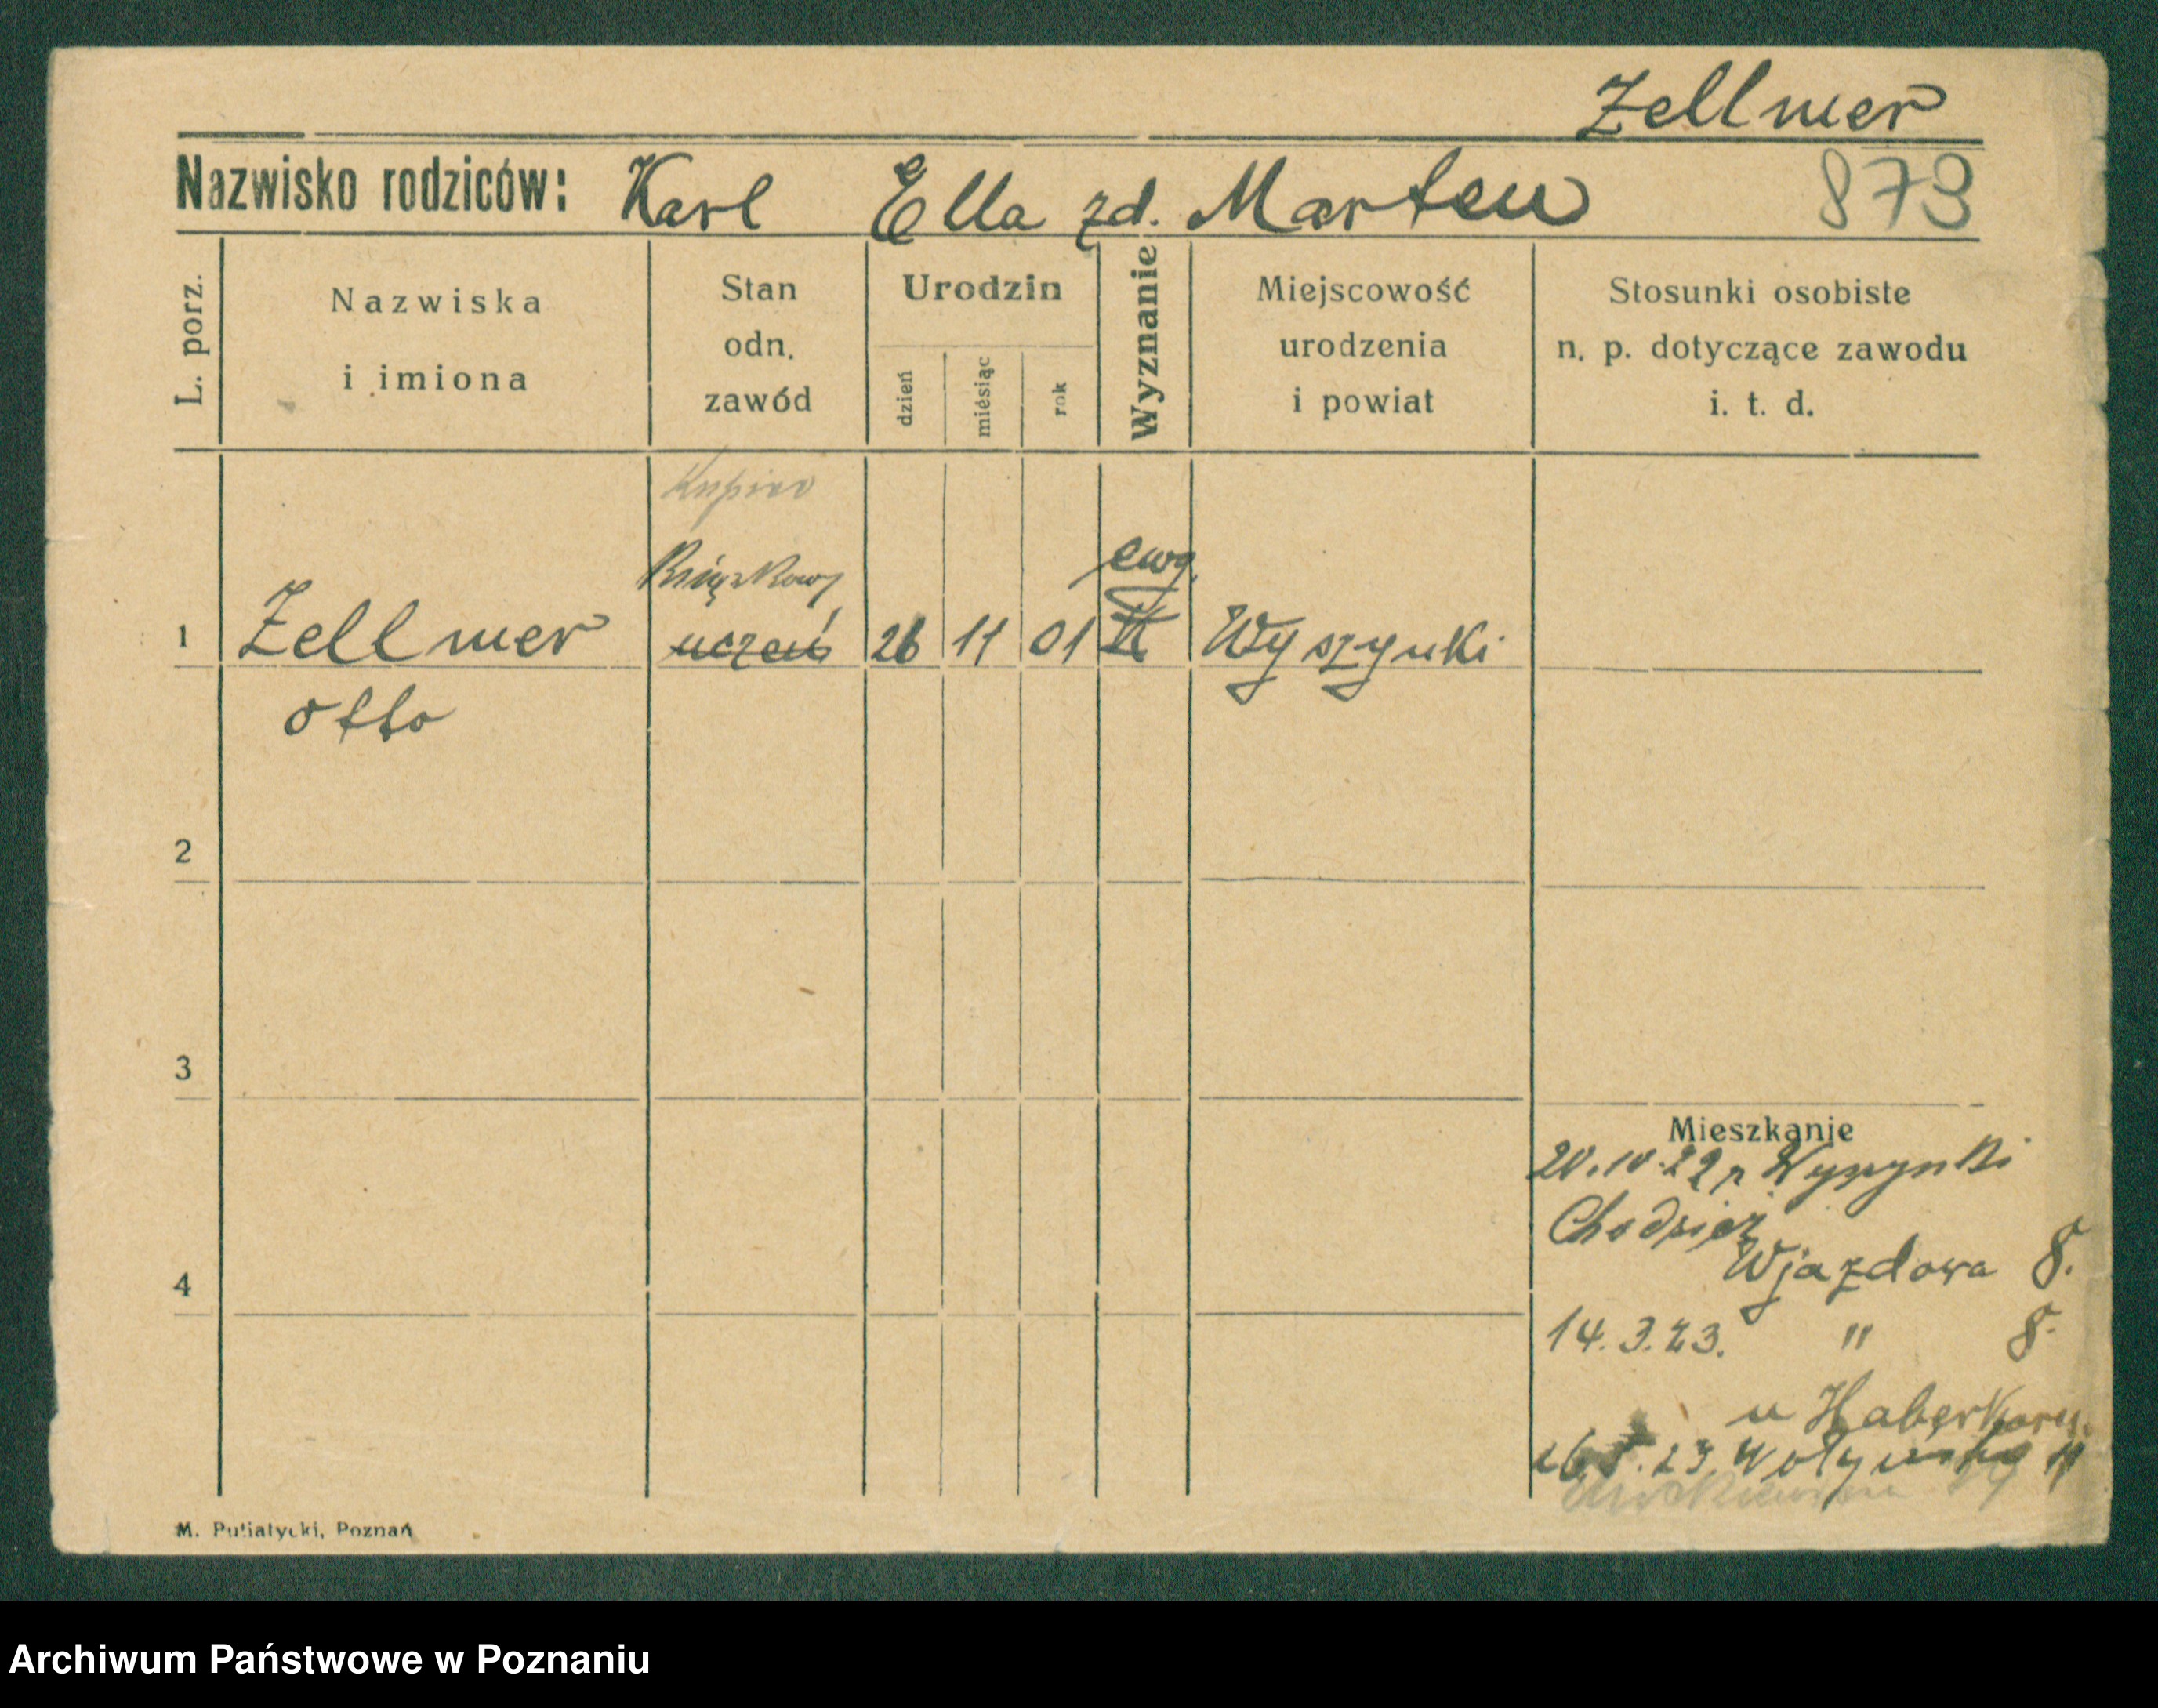 Zellmer
Nazwisko rodziców: Karl Ella zd. Marten 873
L. porz.
Nazwiska
i imiona
Stan
odn.
zawód
Urodzin
dzień
miesiąc
rok
Wyznanie
Miejscowość
urodzenia
i powiat
Stosunki osobiste
n. p. dotyczące zawodu
i. t. d.
Kupiec
ewg.
1 Zellmer uczeń 26 11 01 K Wyszynki
Otto
2
3
Mieszkanie
20.10.22 z Wyszynki
Chodzież
4
Wjazdowa 8.
14.3.23. " 8.
u Haberkorn.
23 Wołyńska 11
M. Putiatycki, Poznań
Archiwum Państwowe w Poznaniu